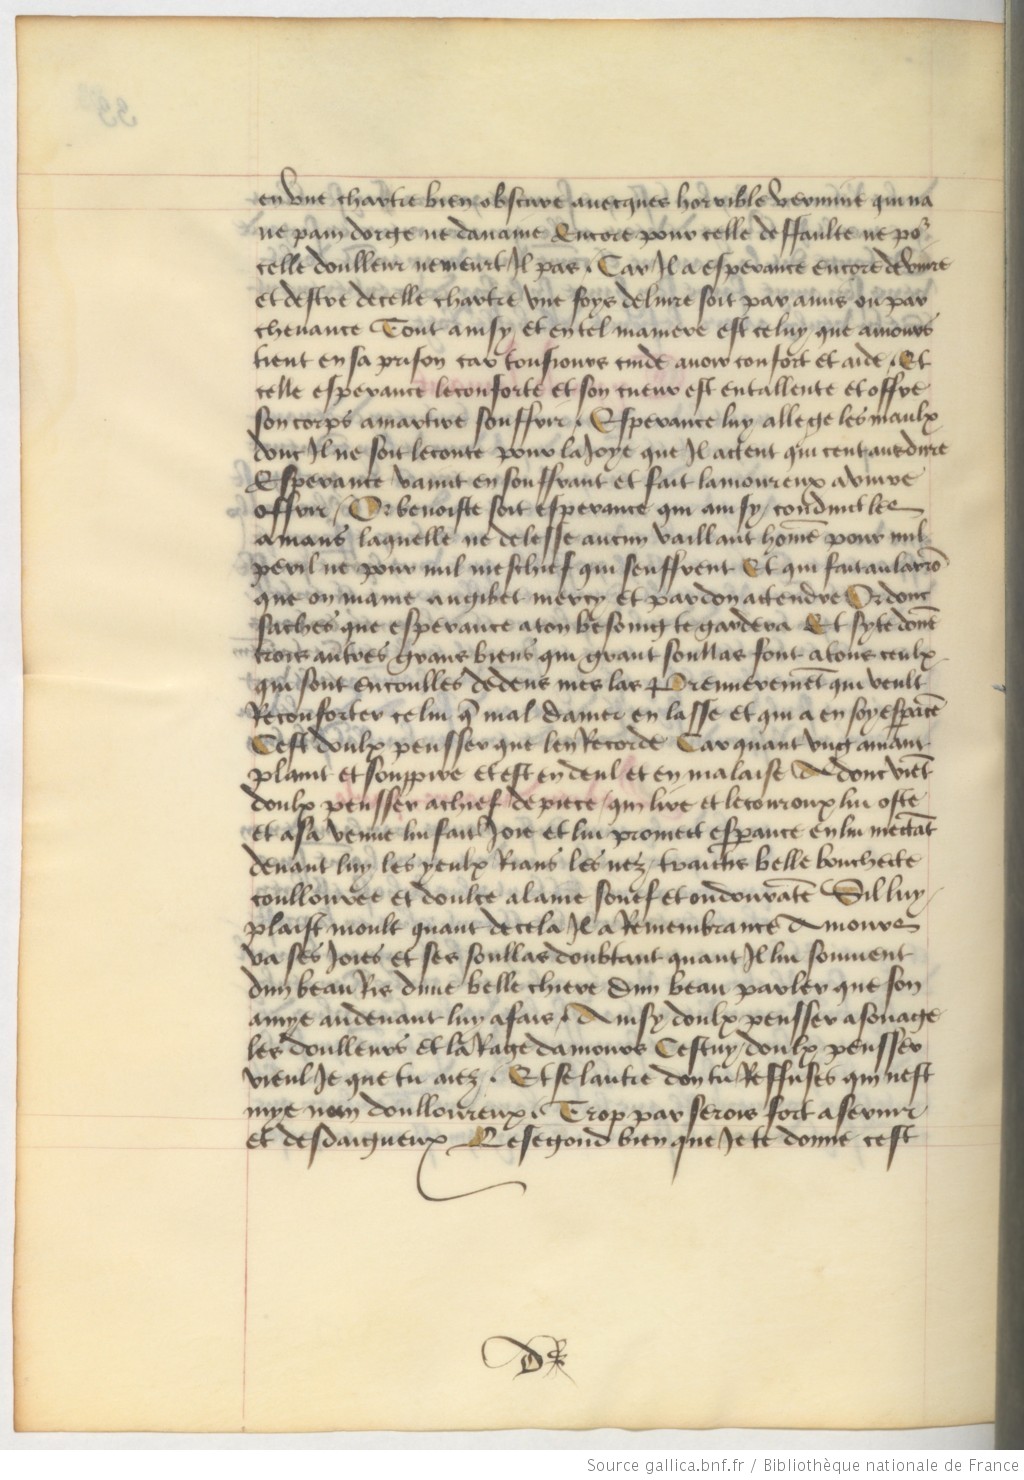 en vne chartre bien obscure auecques horrible vermine qui na
ne pain dorge ne dauaine Encore pour celle deffaulte ne po͛
celle doulleur ne meurt Il pas . Car Il a esperance encore de viure
et destre de celle chartre vne foys deliure soit par amis ou par
cheuance Tout ainsy et en tel maniere est celuy que amours
tient en sa prison car tousiours cuide auoir confort et aide . Et
celle esperance le conforte et son cueur est entallente et offre
son corps a martire souffrir . Esperance luy allege les maulx
dont Il ne soit le conte pour la Ioye que Il actent qui cent ans dure
Esperance vaint en souffrant et fait lamoureux a viure
offrir / Or benoiste soit esperance qui ainsy / conduit les
amans laquelle ne delesse aucun vaillant hom̄e pour nul
peril ne pour nul meschief qui seuffrent Et qui fait au larrō
que on maine au gibet mercy et pardon actendre Or donc
saches que esperance a ton besoing te gardera Et sy te donē
trois autres grans biens qui grant soullas font a tous ceulx
qui sont encoulles dedens mes las Premieremēt qui veult
Reconforter celui q̄ mal damer en lasse et qui a en soy espāce
Cest doulx pensser que len Recorde Car quant vng amant
plaint et souppire et est en deul et en malaise A donc viēt
doulx pensser a chief de piece / qui lire et le couroux lui oste
et a sa venue lui fait Ioie et lui promect espance en lui mectāt
deuant luy les yeulx Rians les nez / traictis belle bouchecte
coullouree et doulce alaine souef et oudourātē Sil luy /
plaist moult quant de cela Il a Remembrance Amours
va ses Ioies et ses soullas doubtant quant Il lui souuient
dun beau Ris dune belle chiere dun beau parler que son
amye au deuant luy a fais . Ainsy doulx pensser asouage
les doulleurs et la Rage damours Cestuy / doulx pensser
vieul Ie que tu aiez . Et se lautre don tu Reffuses qui nest
mye moin doulloureux . Trop par serois fort a seruir
et desdaigneux Le segond bien que Ie te donne cest